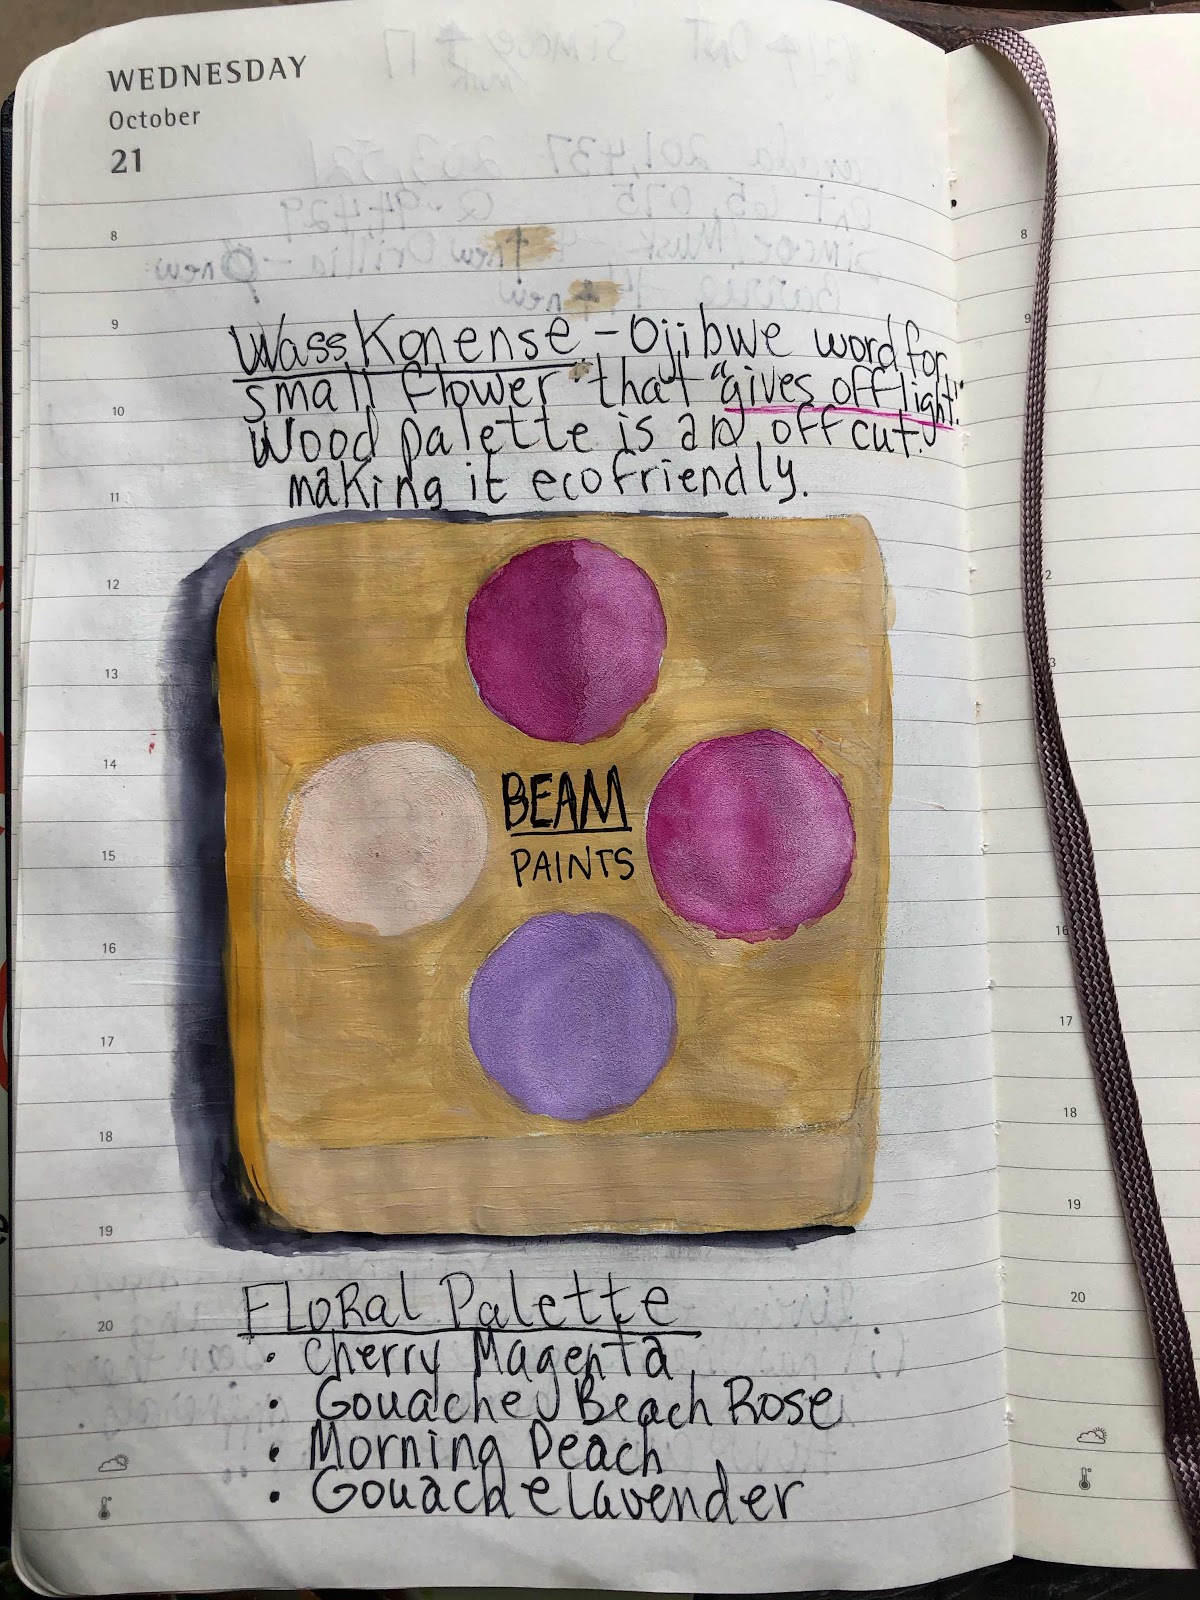 WEDNESDAY
October
21
8
9
WassKonense - Ojibwe word for
small flower "that "gives off light."
10
Wood palette is an off cut.
making it ecofriendly.
11
12
13
14
BEAM
PAINTS
15
16
17
18
19
FLoRal Palette
20
• Cherry Magenta
• Gouache Beach Rose
• Morning Peach
• Gouache lavender
8
9
2
3
16
17
18
19
20